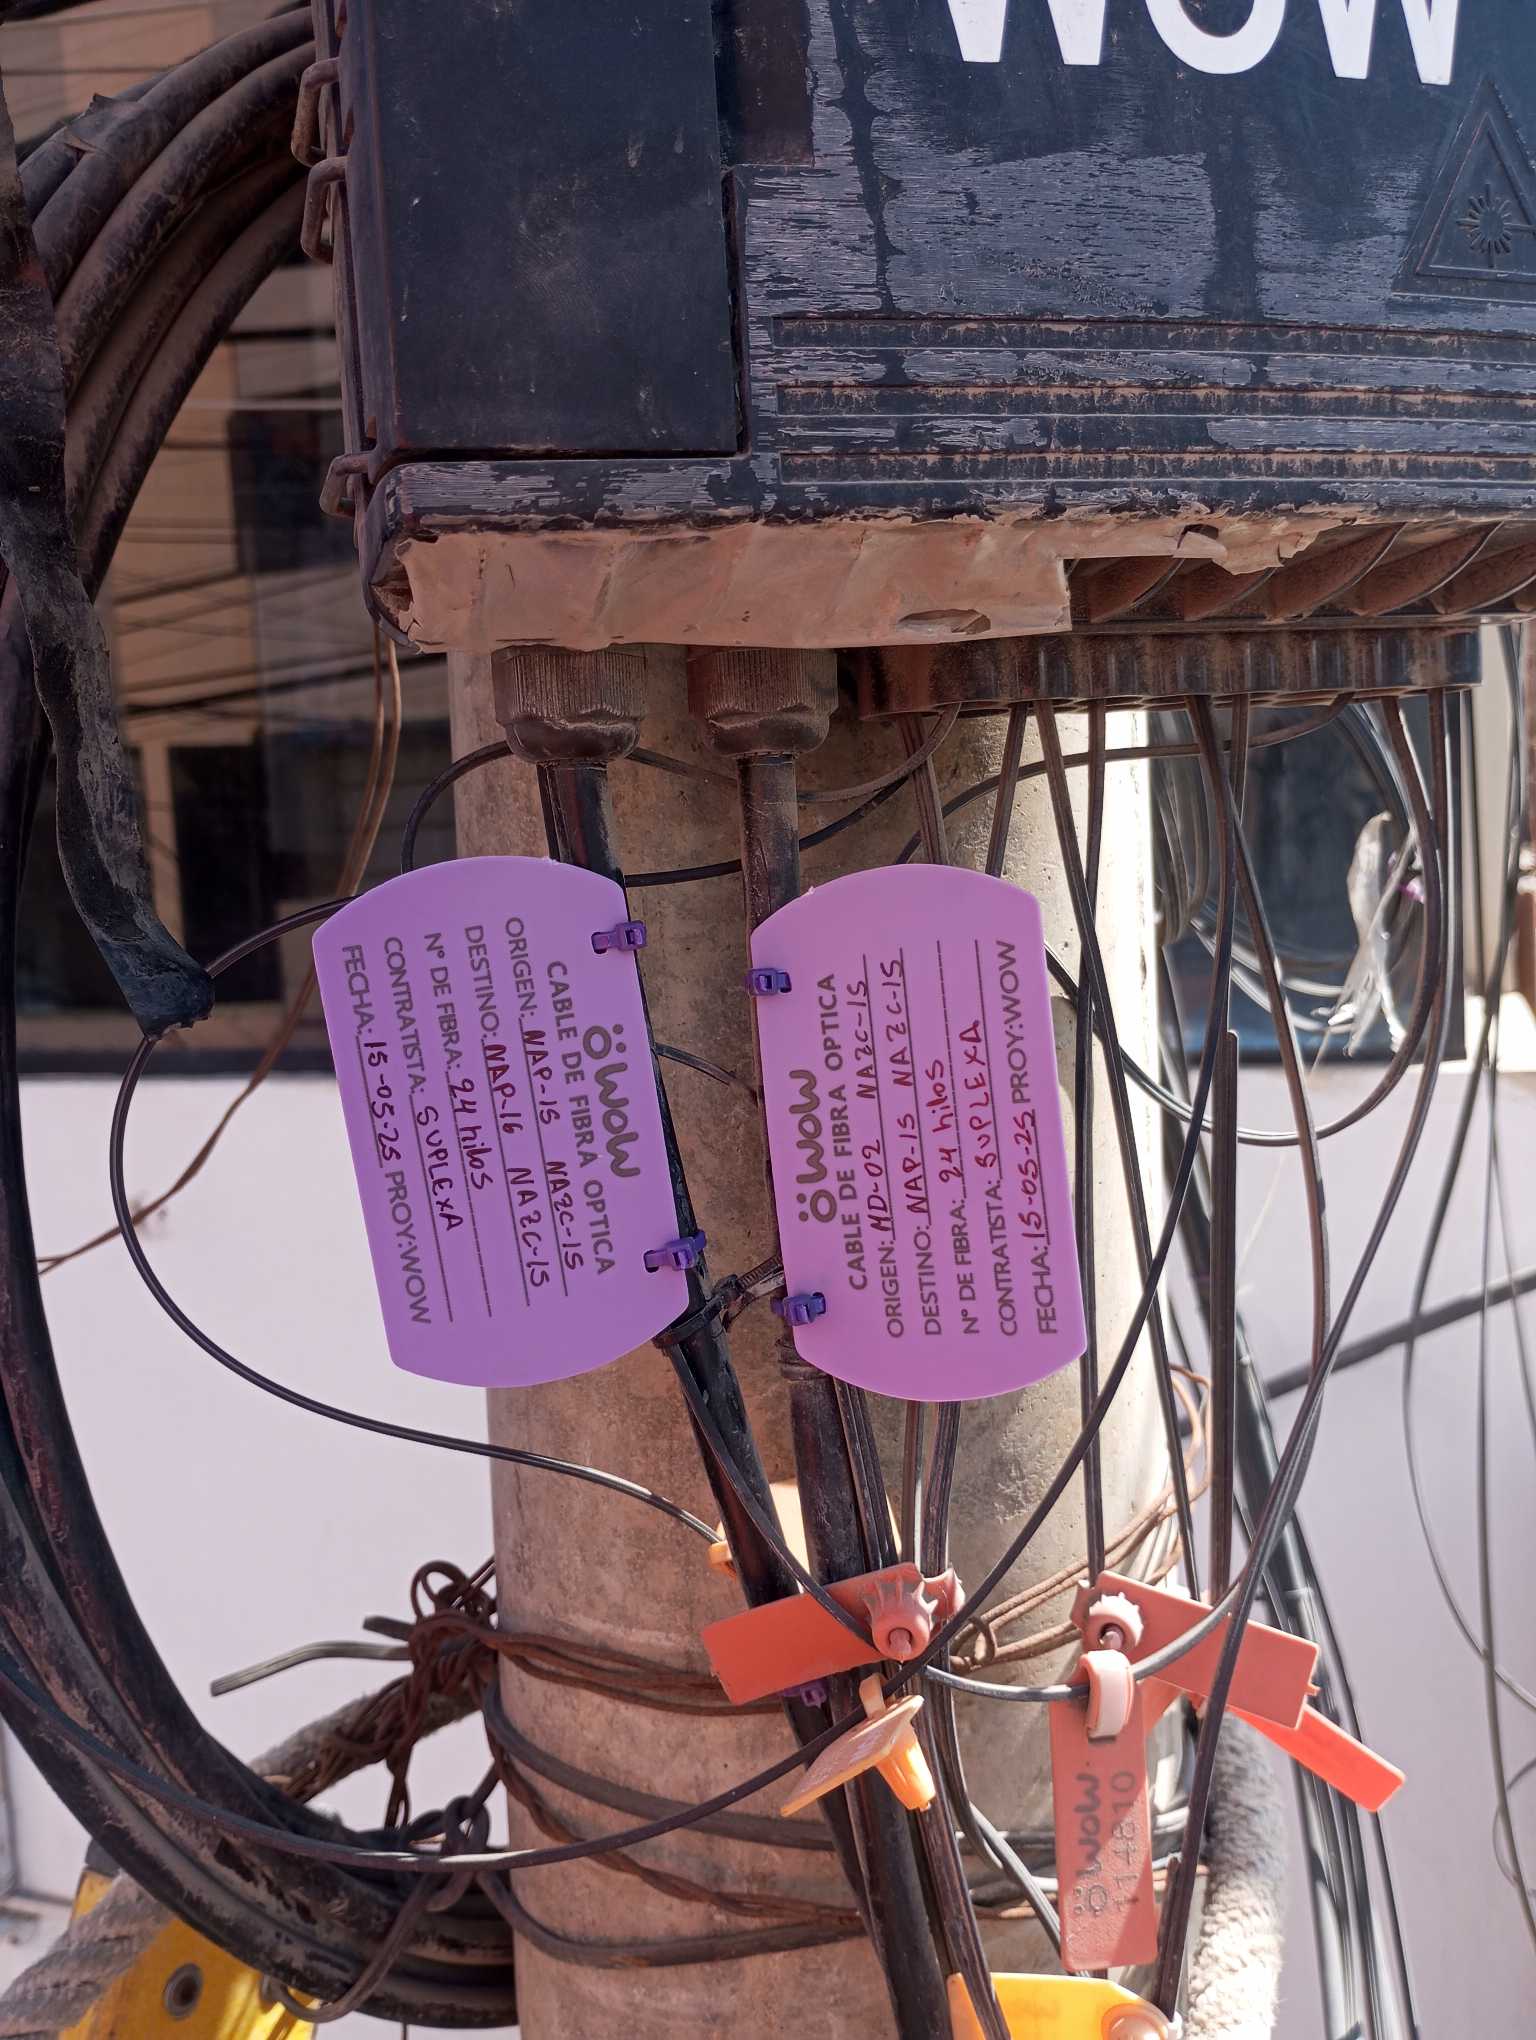 WOW
WOW
CABLE DE FIBRA OPTICA
ORIGEN: NAP-15 NAZC-15
DESTINO: NAP-16 NAZC-15
N° DE FIBRA: 24 hilos
CONTRATISTA: SUPLEXA
FECHA: 15-05-25 PROY:WOW
WOW
CABLE DE FIBRA OPTICA
ORIGEN: MD-02 NAZC-15
DESTINO: NAP-15 NAZC-15
N° DE FIBRA: 24 hilos
CONTRATISTA: SUPLEXA
FECHA: 15-05-25 PROY:WOW
WOW